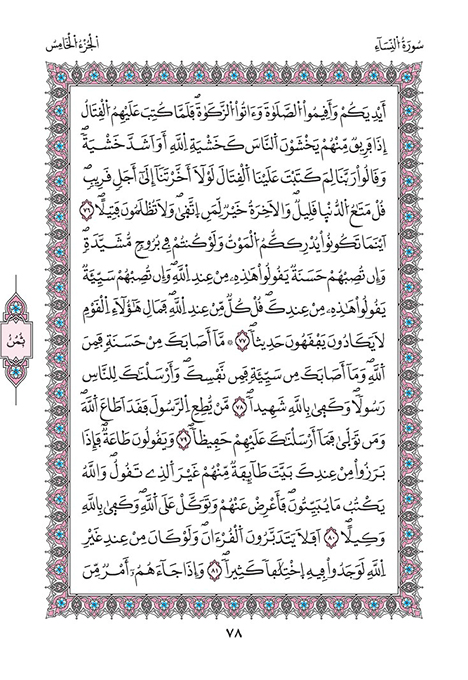 سُورَةُ النِّسَاءِ
الْجُزْءُ الْخَامِسُ
أَيْدِيَكُمْ وَأَقِيمُواْ الصَّلَوٰةَ وَءَاتُواْ الزَّكَوٰةَ فَلَمَّا كُتِبَ عَلَيْهِمُ الْقِتَالُ
إِذَا فَرِيقٌ مِّنْهُمْ يَخْشَوْنَ النَّاسَ كَخَشْيَةِ اللَّهِ أَوَ اَشَدَّ خَشْيَةً
وَقَالُواْ رَبَّنَا لِمَ كَتَبْتَ عَلَيْنَا الْقِتَالَ لَوْلَا أَخَّرْتَنَا إِلَىٰ أَجَلٍ قَرِيبٍ
قُلْ مَتَٰعُ الدُّنْيَا قَلِيلٌ وَالَاخِرَةُ خَيْرٌ لِّمَنِ اِتَّقَىٰ وَلَا تُظْلَمُونَ فَتِيلًا ٧٦
اَيْنَمَا تَكُونُواْ يُدْرِككُّمُ الْمَوْتُ وَلَوْ كُنتُمْ فِي بُرُوجٍ مُّشَيَّدَةٍ
وَإِن تُصِبْهُمْ حَسَنَةٌ يَقُولُواْ هَٰذِهِۦ مِنْ عِندِ اللَّهِ وَإِن تُصِبْهُمْ سَيِّئَةٌ
يَقُولُواْ هَٰذِهِۦ مِنْ عِندِكَ قُلْ كُلٌّ مِّنْ عِندِ اللَّهِ فَمَالِ هَٰؤُلَاءِ الْقَوْمِ
لَا يَكَادُونَ يَفْقَهُونَ حَدِيثًا ٧٧ ۞ مَّا أَصَابَكَ مِنْ حَسَنَةٍ فَمِنَ
ثُمُنُ
اَللَّهِ وَمَا أَصَابَكَ مِن سَيِّئَةٍ فَمِن نَّفْسِكَ وَأَرْسَلْنَٰكَ لِلنَّاسِ
رَسُولًا وَكَفَىٰ بِاللَّهِ شَهِيدًا ٧٨ مَّنْ يُّطِعِ الرَّسُولَ فَقَدَ اَطَاعَ اَللَّهَ
وَمَن تَوَلَّىٰ فَمَا أَرْسَلْنَٰكَ عَلَيْهِمْ حَفِيظًا ٧٩ وَيَقُولُونَ طَاعَةٌ فَإِذَا
بَرَزُواْ مِنْ عِندِكَ بَيَّتَ طَائِفَةٌ مِّنْهُمْ غَيْرَ اَلَّذِي تَقُولُ وَاللَّهُ
يَكْتُبُ مَا يُبَيِّتُونَ فَأَعْرِضْ عَنْهُمْ وَتَوَكَّلْ عَلَى اَللَّهِ وَكَفَىٰ بِاللَّهِ
وَكِيلًا ٨٠ اَفَلَا يَتَدَبَّرُونَ اَلْقُرْءَانَ وَلَوْ كَانَ مِنْ عِندِ غَيْرِ
اِللَّهِ لَوَجَدُواْ فِيهِ اِخْتِلَٰفًا كَثِيرًا ٨١ وَإِذَا جَاءَهُمُۥ أَمْرٌ مِّنَ
٧٨